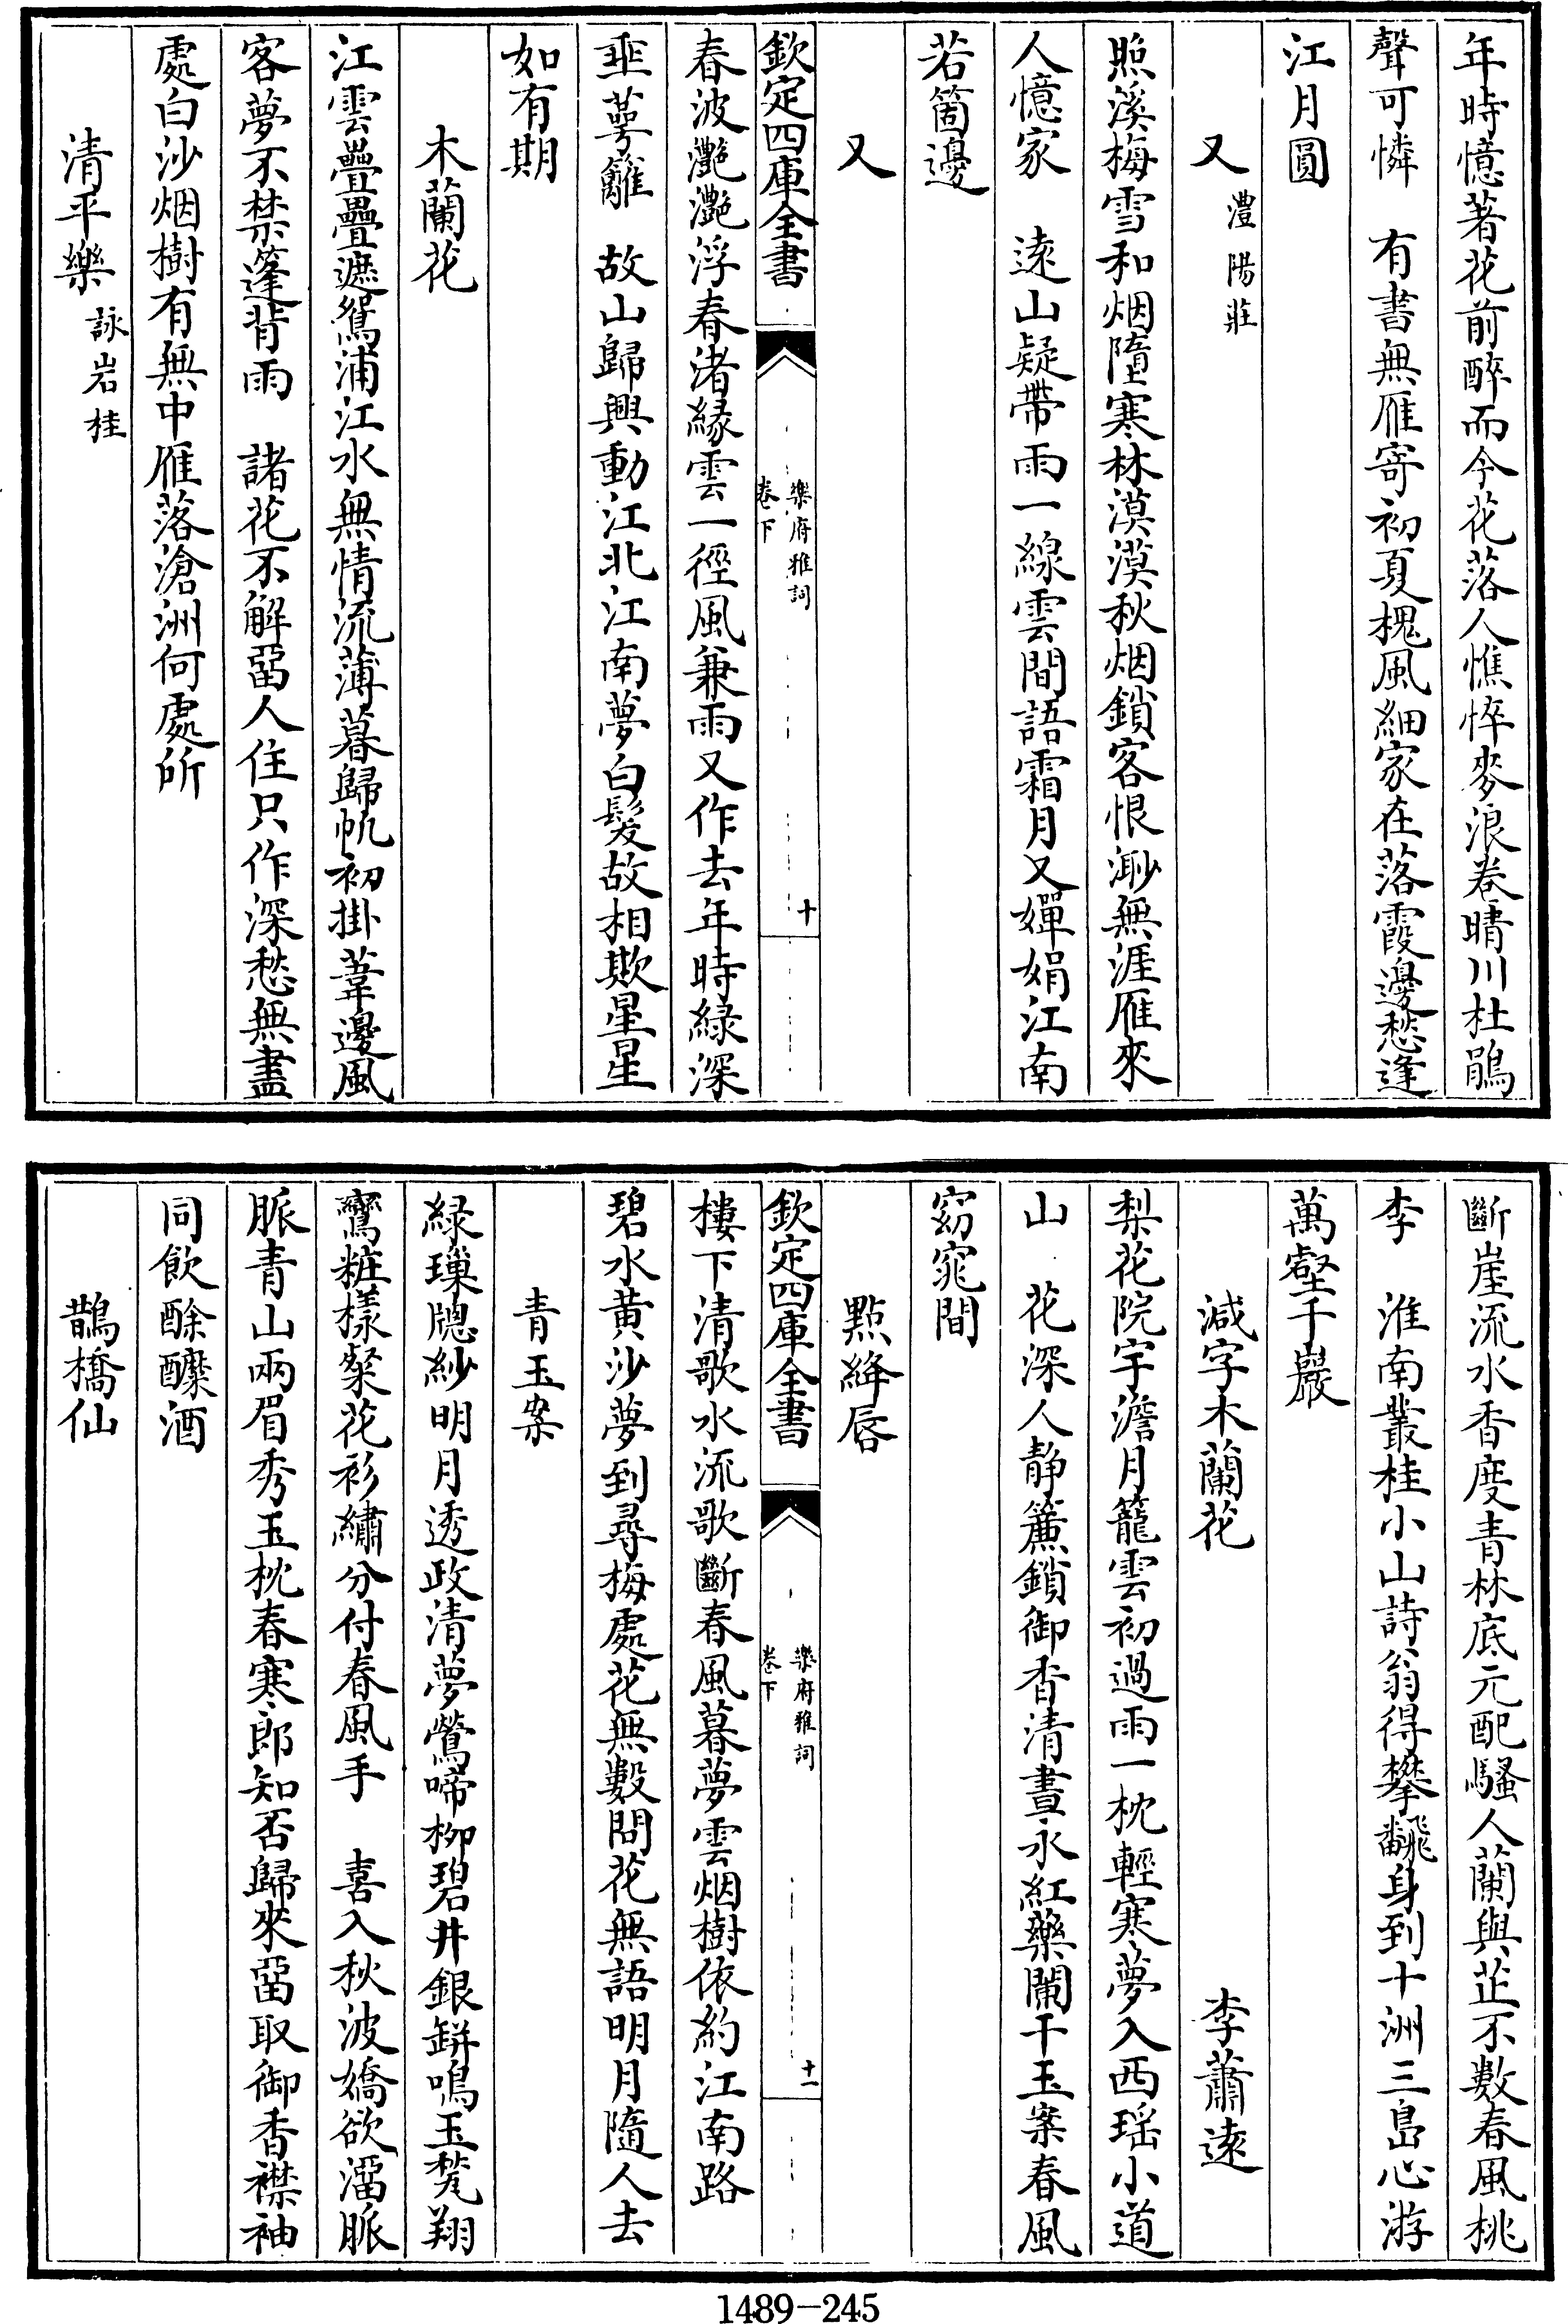 年時憶著花前醉而今花落人憔悴麥浪卷晴川杜鵑
聲可憐　有書無雁寄初夏槐風細家在落霞邊愁逢
江月圓
又　澧陽莊
照溪梅雪和烟墮寒林漠漠秋烟鎖客恨渺無涯雁來
人憶家　遠山疑帶雨一線雲間語霜月又嬋娟江南
若箇邊
又
欽定四庫全書　樂府雅詞　卷下　十
春波灔灔浮春渚緣雲一徑風兼雨又作去年時綠深
韭萼籬　故山歸興動江北江南夢白髮故相欺星星
如有期
木蘭花
江雲疊疊遮鴛浦江水無情流薄暮歸帆初掛葦邊風
客夢不禁篷背雨　諸花不解畱人住只作深愁無盡
處白沙烟樹有無中雁落滄洲何處所
清平樂　詠岩桂
斷崖流水香度青林底元配騷人蘭與芷不數春風桃
李　淮南叢桂小山詩翁得攀飜身到十洲三島心游
萬壑千巖
減字木蘭花　李蕭遠
梨花院宇澹月籠雲初過雨一枕輕寒夢入西瑶小道
山　花深人靜簾鎖御香清晝永紅藥闌干玉案春風
窈窕間
點絳唇
欽定四庫全書　樂府雅詞　卷下　十一
樓下清歌水流歌斷春風暮夢雲烟樹依約江南路
碧水黄沙夢到尋梅處花無數問花無語明月隨人去
青玉案
綠璅牕紗明月透政清夢鶯啼柳碧井銀缾鳴玉甃翔
鸞粧樣粲花衫繡分付春風手　喜入秋波嬌欲溜脈
脈青山兩眉秀玉枕春寒郎知否歸來畱取御香襟袖
同飲酴醿酒
鵲橋仙
1489—245